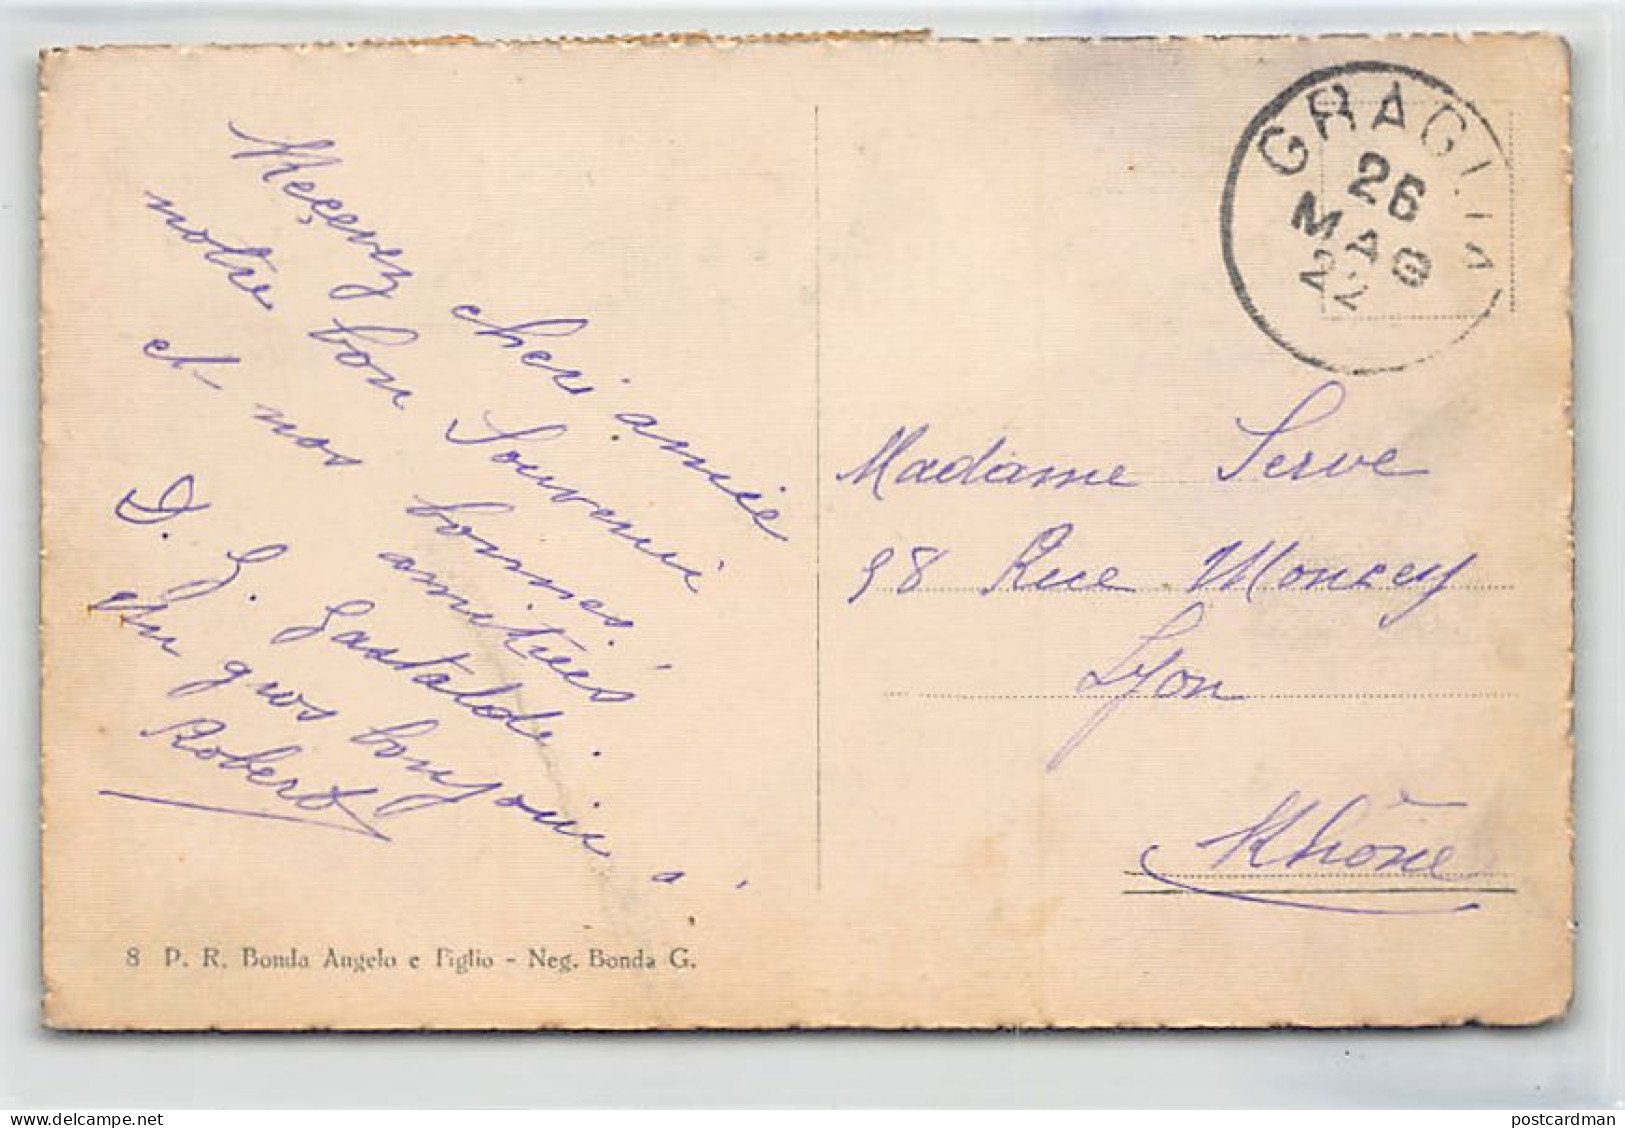 Recevez chère amie
notre bon Souvenir
et nos bonnes
amitiés
D. G. Gastaldi.
Un gros bonjour à
Robert
8 P. R. Bonda Angelo e Figlio - Neg. Bonda G.
GRAGLIA
26
MAG
22
Madame Serve
98 Rue Moncey
Lyon
Rhône
www.delcampe.net
postcardman